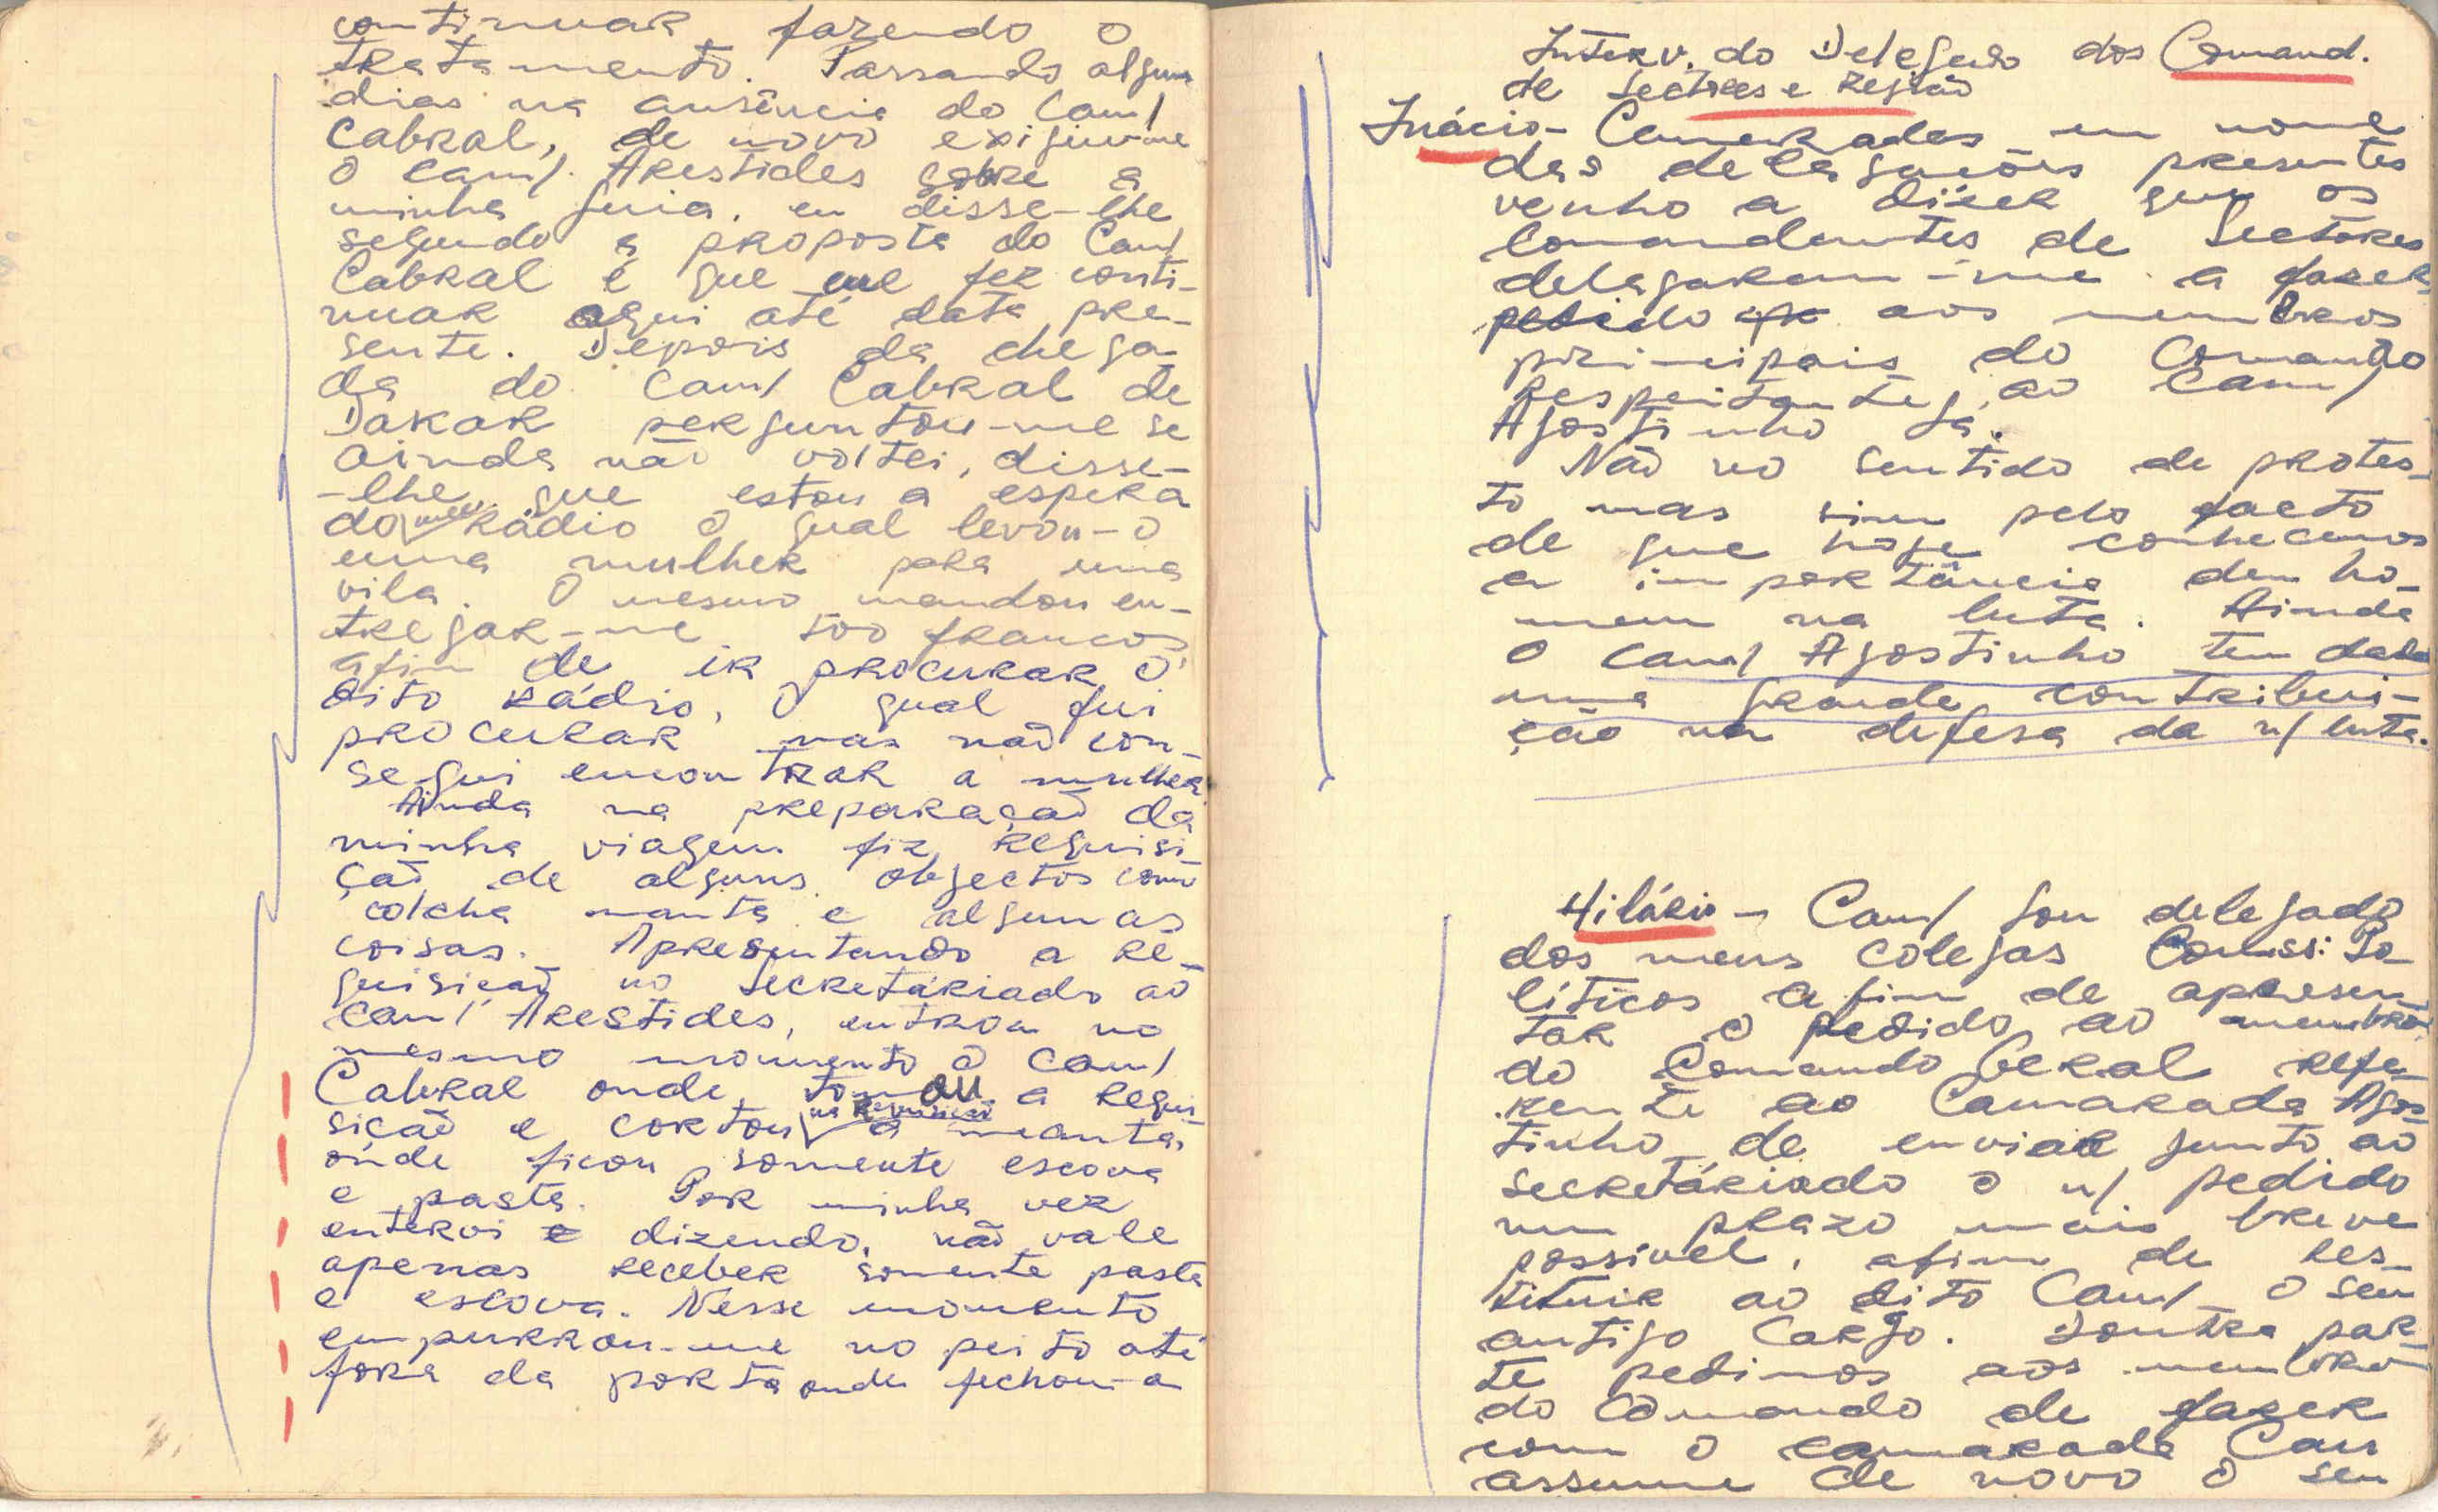 continuar fazendo o
tratamento. Passando algum
dias na ausência do Cam/
Cabral, de novo exigiu-me
o Cam/. Arestides sobre a
minha guia. eu disse-lhe
segundo a proposta do Cam/
Cabral é que me fez conti-
nuar aqui até data pre-
sente. Depois da chega-
da do Cam/ Cabral de
Dakar perguntou-me se
ainda não voltei, disse-
-lhe que estou a espera
do meu Rádio o qual levou-o
uma mulher para uma
vila. O mesmo mandou en-
tregar-me 500 francos
afim de ir procurar o
dito Rádio, o qual fui
procurar mas não con-
segui encontrar a mulher
Ainda na preparação da
minha viagem fiz requisi-
ção de alguns objectos como
colcha manta e algumas
coisas. Apresentando a re-
quisição no Secretáriado ao
Cam/ Arestides, entrou no
mesmo momento o Cam/
Cabral onde tomou a requi-
sição e cortou na Requisição a manta,
onde ficou somente escova
e pasta. Por minha vez
entervi dizendo, não vale
apenas receber somente pasta
e escova. Nesse momento
empurrou-me no peito até
fora da porta onde fechou-a
Interv. do Delegado dos Comand.
de Sectores e Região
Inácio - Camaradas em nome
das delegações presentes
venho a dizer que os
Comandantes de Sectores
delegaram-me a fazer
pedido aos membros
principais do Comando
respeitante ao Cam/
Agostinho Sá.
Não no sentido de protes-
to mas sim pelo facto
de que hoje conhecemos
a importância dum ho-
mem na luta. Ainda
o Cam/ Agostinho tem dado
uma grande contribui-
ção na defesa da n/ luta.
Hilário - Cam/ Sou delegado
dos meus colegas Comiss: Po-
líticos afim de apresen-
tar o pedido ao membro
do Comando Geral refe-
rente ao Camarada Agos-
tinho de enviar junto ao
secretáriado o n/ pedido
num prazo mais breve
possível, afim de res-
tituir ao dito Cam/ o seu
antigo Cargo. Doutra par-
te pedimos aos membro
do Comando de fazer
com o camarada Can
assume de novo o seu